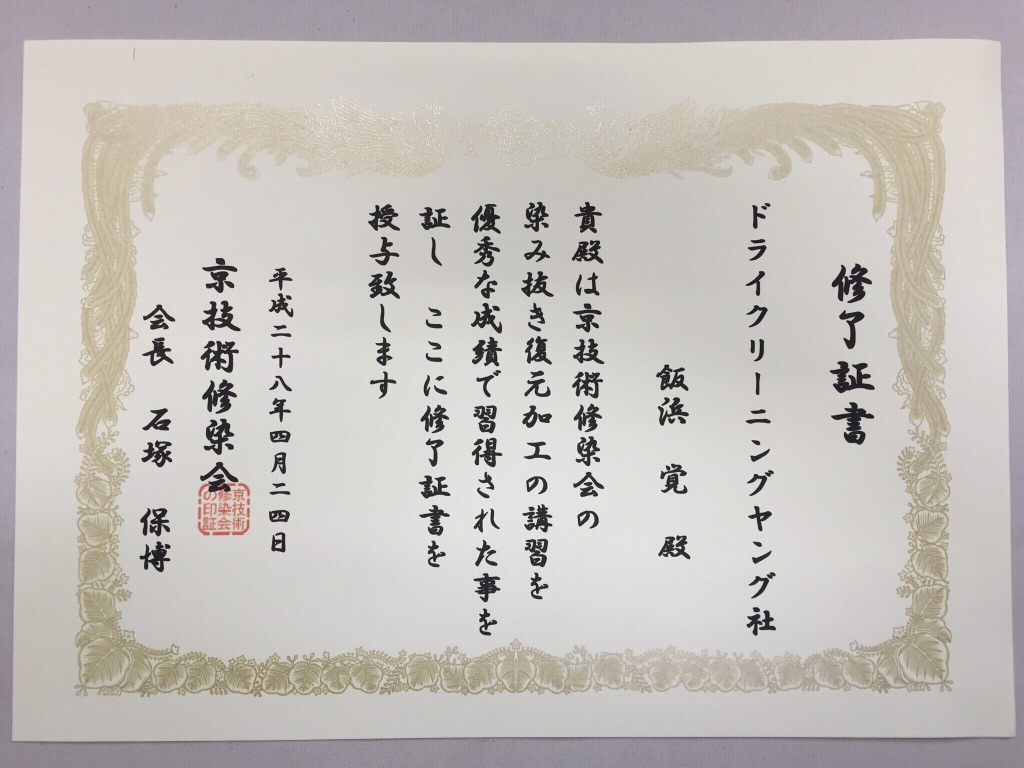 修了証書
ドライクリーニングヤング社
飯浜 覚 殿
貴殿は京技術修染会の
染み抜き復元加工の講習を
優秀な成績で習得された事を
証し ここに修了証書を
授与致します
平成二十八年四月二四日
京技術修染会
会長 石塚 保博
京技術
修染会
の印証